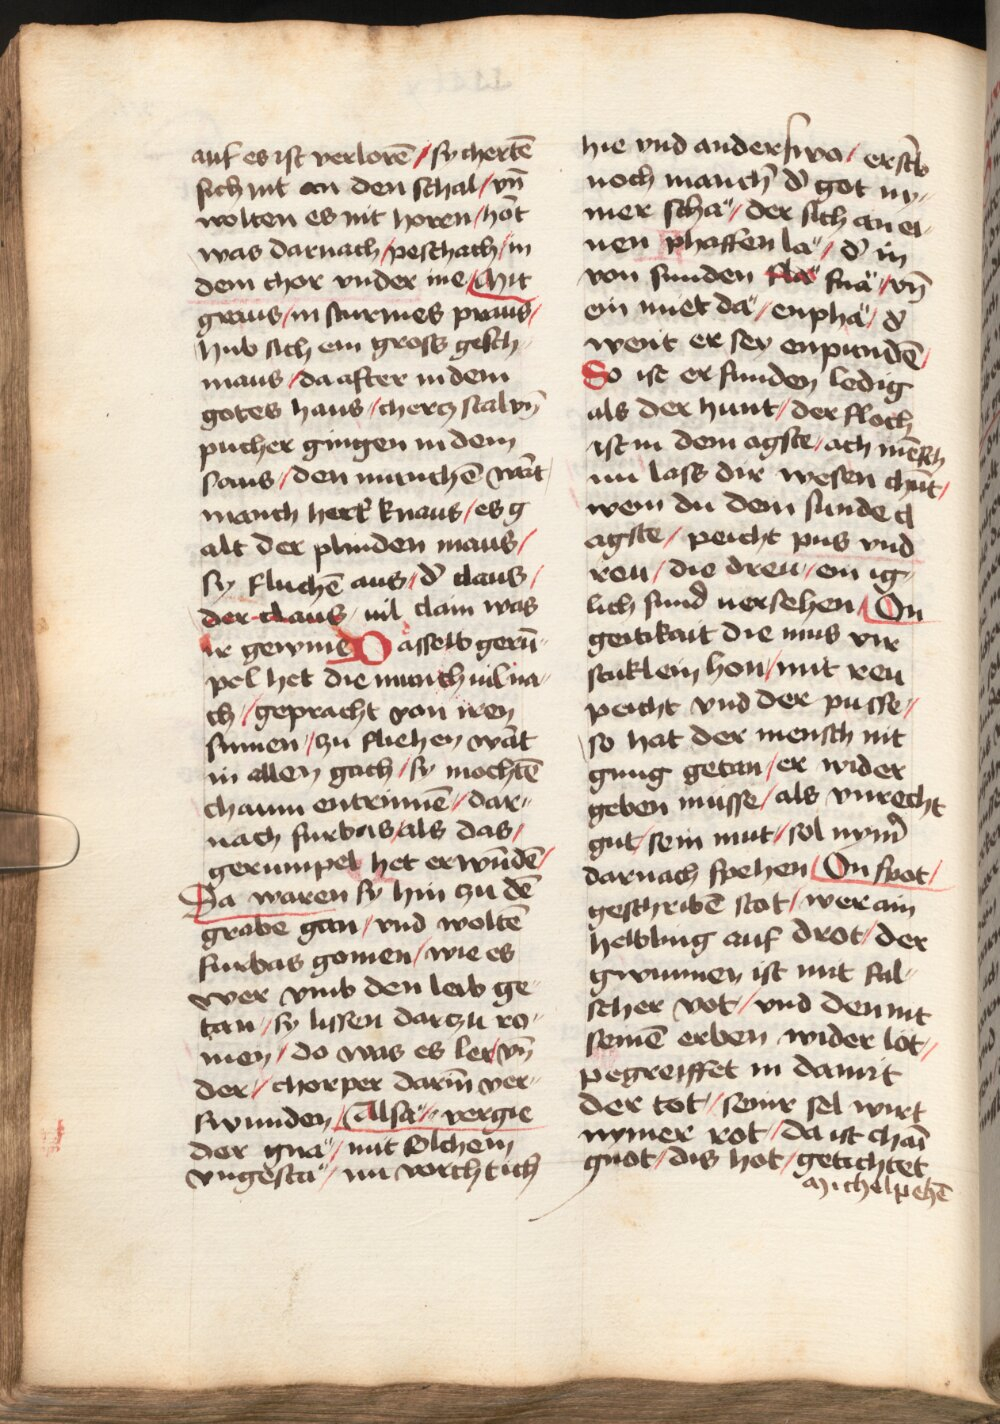 auf es ist verlorē / sy chertē
sich nit an den schal / vn̄
wolten es nit horen / hōt
was darnach peschach / in
dem chor vnder ine / Mit
graus / in sturmes praus /
hub sich ein gross gesch
maus / da after in dem
gotes haus / cherczstal vn̄
pucher gingen in dem
saus / den munchē wāt
manch herꝰ knaus / es g
alt der plinden maus /
sy fluchē aus / d̄ claus /
der claus / vil clain was
ir gewine Dasselb gerū
pel het die munch vil na
ch / gepracht von iren
sinnen / zu fliehen wāt
in allen gach / sy mochtē
chaum entrinnē / dar
nach furbas / als das /
gerumpel het erwūdē /
Da waren sy hin zu dē
grabe gan / vnd woltē
furbas gomen / wie es
wer vmb den leib ge
tan / sy lissen darzu ro
men / do was es ler vn̄
der / chorper darīn ver
swunden / Alsa / vergie
der gna / mit solchem
vngesta / nu vorcht ich
hie vnd anderswo / erstēb
noch manch̄ d̄ got ny
mer scha / der sich an ei
nen phaffen la / d̄ in
von sunden sna / vn̄
ein miet da / enpha / d̄
went er sey enpundē /
So ist er funden ledig
als der hunt / der floch
ist in dem agste / ach mēsch
nu lass dir wesen chūt /
wem du dem sunde cl
agste / peicht pus vnd
reu / die dreu / ein ig
lich sund versehen / On
geitikait die mus vir
stuklein hon / mit reu
peicht vnd der pusse /
so hat der mensch nit
gnug getan / er wider
geben müsse / als vnrecht
gut / sein mut / sol nym̄
darnach spehen / On spot /
geschribē stat / wer ain
helbling auf drot / der
gwunnen ist mit fal
scher vot / vnd den nit
seinē erben wider lot /
pegreiffet in damit
der tot / seinr sel wirt
nymer rot / da ist chaī
gnot / dis hot / getichtet
Michel pehē